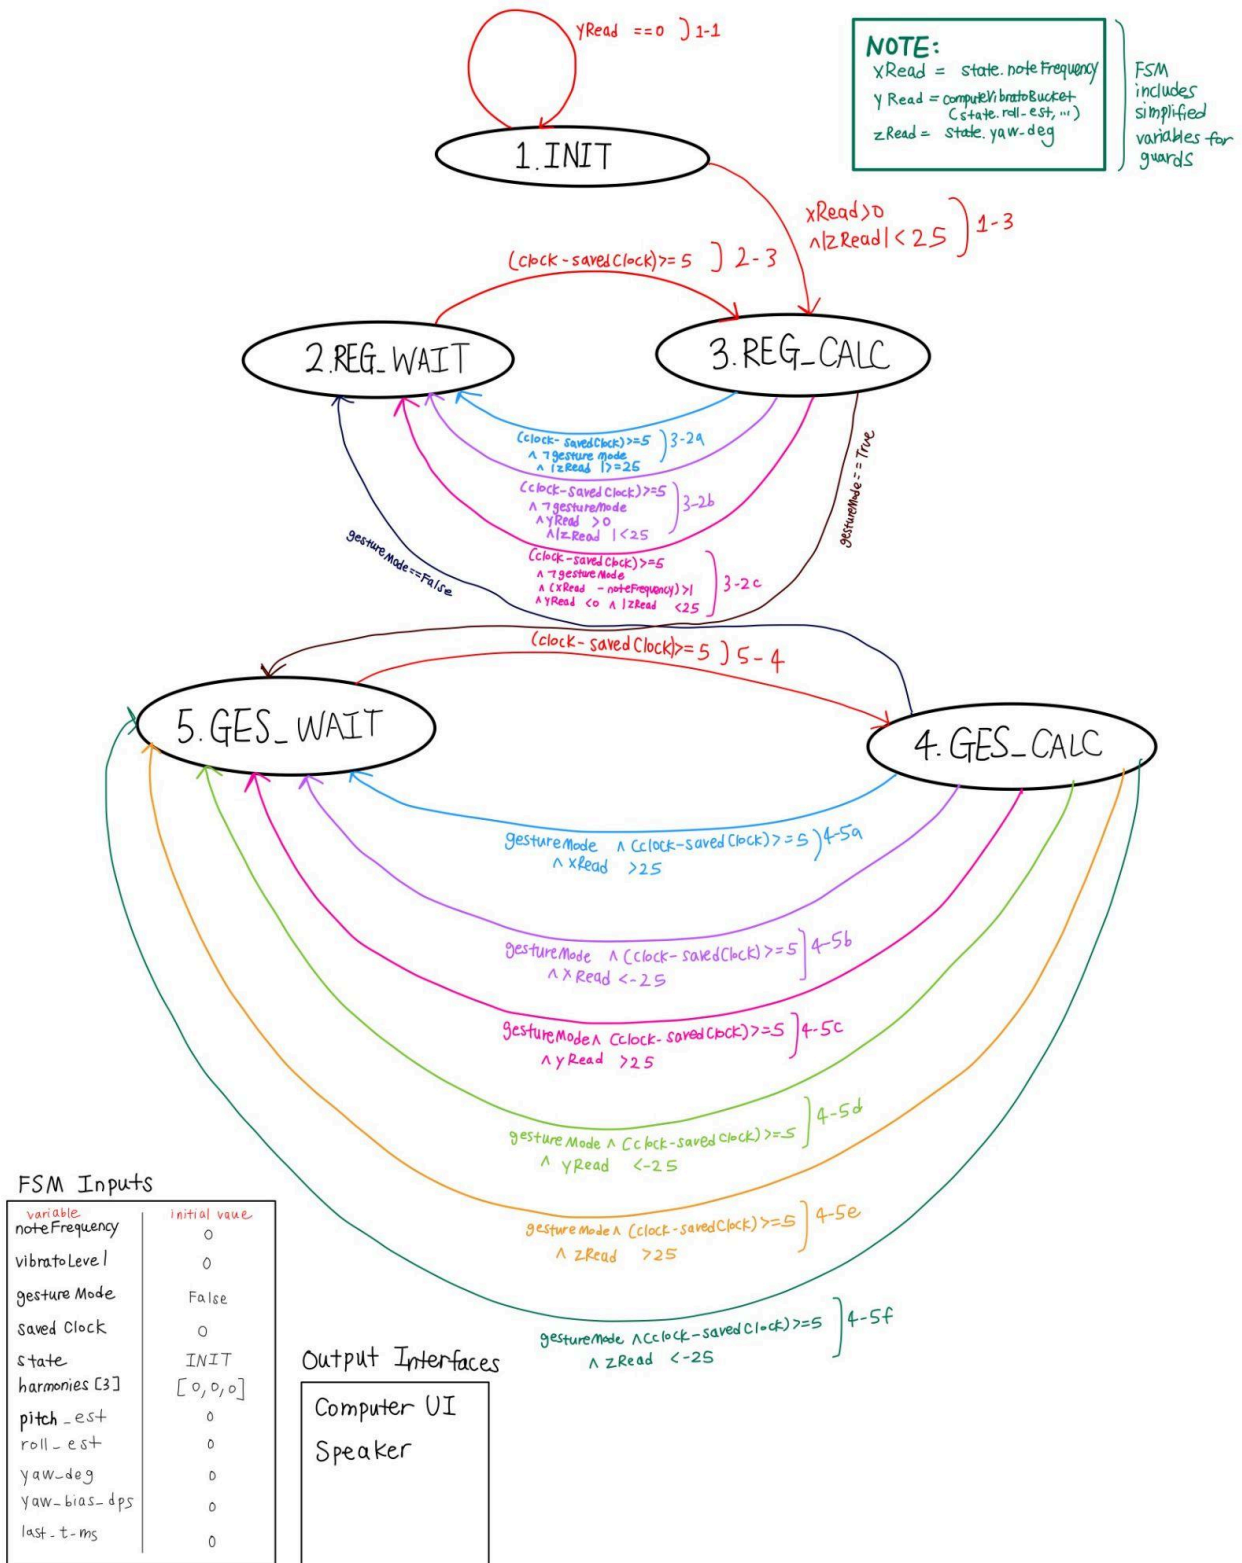 yRead ==0 ) 1-1
NOTE:
xRead = state.noteFrequency
yRead = computeVibratoBucket
(state.roll_est, ...)
zRead = state.yaw-deg
FSM
includes
simplified
variables for
guards
1. INIT
xRead>0
∧|zRead|<25 ) 1-3
(clock-savedClock)>=5 ] 2-3
2.REG_WAIT
3.REG_CALC
(clock-savedClock)>=5 ) 3-2a
∧ ¬gesture mode
∧ |zRead |>=25
(clock-savedClock)>=5 ] 3-2b
∧ ¬gestureMode
∧ yRead >0
∧|zRead |<25
(clock-savedClock)>=5 ] 3-2c
∧ ¬gestureMode
∧ (xRead -noteFrequency)>1
∧ yRead <0 ∧ |zRead <25
gestureMode==True
gestureMode==False
(clock-savedClock)>=5 ) 5-4
5.GES_WAIT
4.GES_CALC
gestureMode ∧ (clock-savedClock)>=5 ) 4-5a
∧ xRead >25
gestureMode ∧ (clock-savedClock)>=5 ] 4-5b
∧ xRead <-25
gestureMode∧ (clock-savedClock)>=5 ] 4-5c
∧ yRead >25
gestureMode ∧ (clock-savedClock)>=5 ] 4-5d
∧ yRead <-25
gestureMode∧ (clock-savedClock)>=5 ] 4-5e
∧ zRead >25
gestureMode ∧(clock-savedClock)>=5 ] 4-5f
∧ zRead <-25
FSM Inputs
variable initial vaue
noteFrequency 0
vibratoLevel 0
gesture Mode False
saved Clock 0
state INIT
harmonies [3] [0,0,0]
pitch_est 0
roll_est 0
yaw_deg 0
yaw_bias_dps 0
last_t-ms 0
Output Interfaces
Computer UI
Speaker